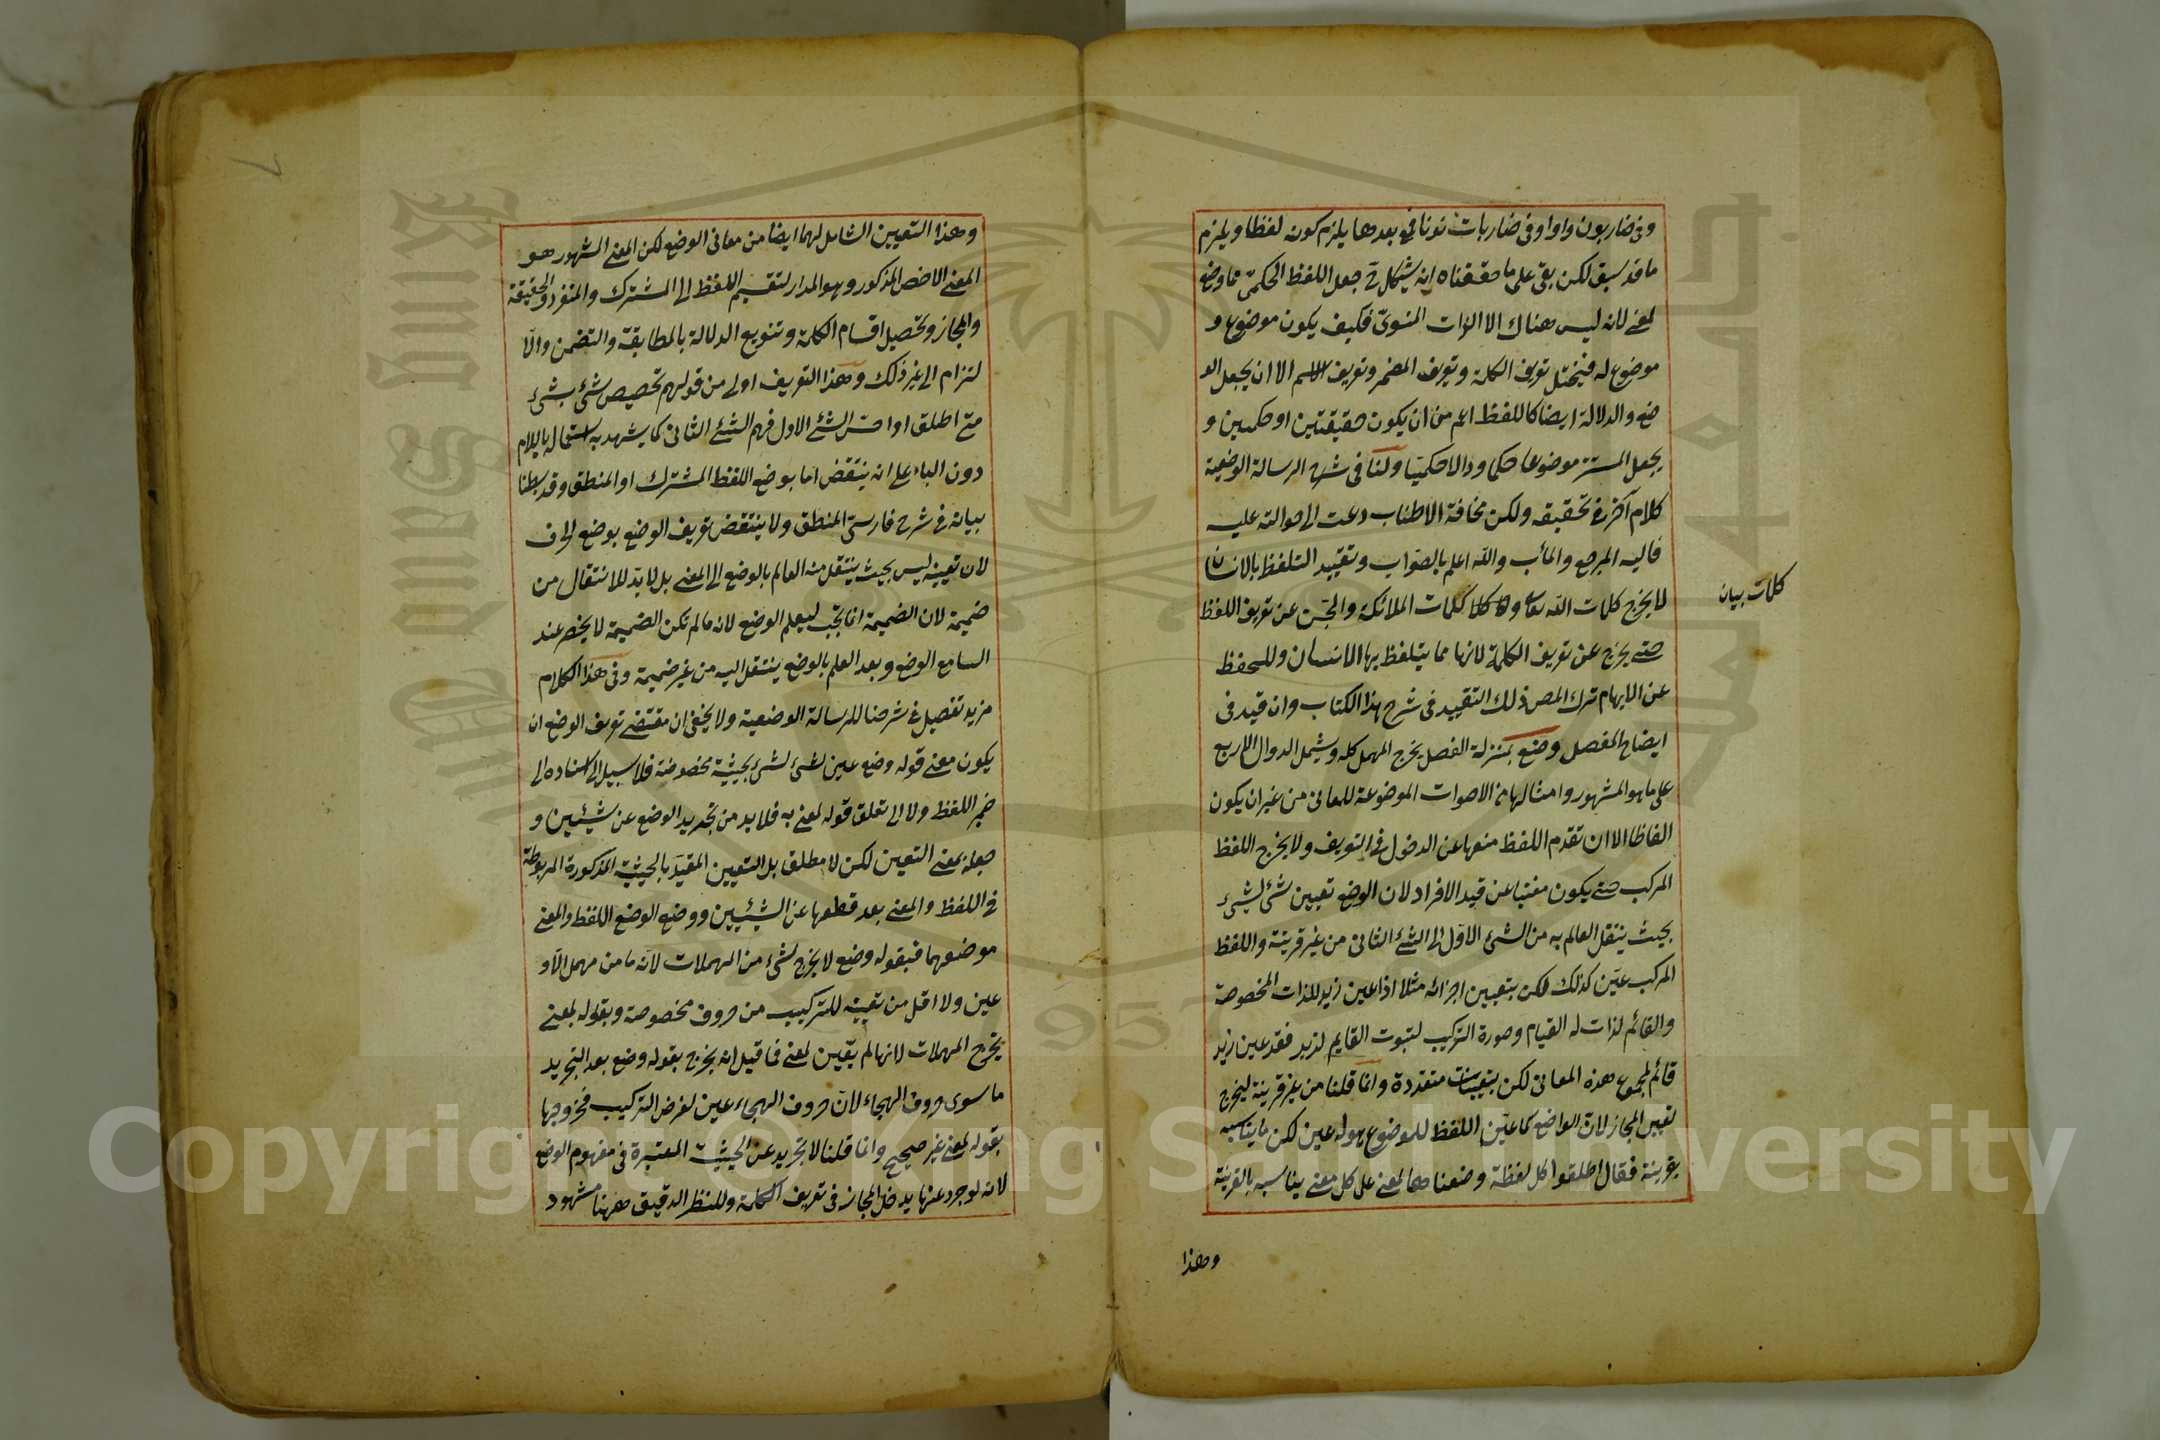 وفى ضاربون واوا وفى ضاربات نونا فى بعدها يلزم كونه لفظا ويلزم
ما قد سبق لكن بقى على ما حققناه انه يشكل ح جعل اللفظ الحكمى مما وضع
لمعنى لانه ليس هناك الا الذات المنوى فكيف يكون موضوع و
موضوع له فيختل تعريف الكلمة وتعريف المضمر وتعريف الاسم الا ان يجعل الو
ضع والدلالة ايضا كاللفظ اعم من ان يكون حقيقتين او حكميين و
يجعل المستتر موضوعا حكما ودالا حكميا ولنا فى شرح الرسالة الوضعية
كلام آخر فى تحقيقه ولكن مخافة الاطناب دعت الى حوالته عليه
فاليه المرجع والمآب والله اعلم بالصواب وتقييد التلفظ بالانسان
لا يخرج كلمات الله تعالى كلمات الملائكة والجن عن تعريف اللفظ
كلمات بيان
حتى يخرج عن تعريف الكلمة لانها مما يتلفظ بها الانسان وللتحفظ
عن الايهام ترك المص ذلك التقييد فى شرح هذا الكتاب وان قيد فى
ايضاح المفصل وضع بمنزلة الفصل يخرج المهمل كله ويشمل الدوال الاربع
على ما هو المشهور وامثالها من الاصوات الموضوعة للمعانى من غير ان يكون
الفاظا الا ان تقدم اللفظ منعها عن الدخول فى التعريف ولا يخرج اللفظ
المركب حتى يكون مغنيا عن قيد الافراد لان الوضع تعيين شئ لشئ
بحيث ينتقل العالم به من الشئ الاول الى الشئ الثانى من غير قرينة واللفظ
المركب عين كذلك لكن بتعيين اجزائه مثلا اذا عين زيد للذات المخصوصة
والقائم لذات له القيام وصورة التركيب لثبوت القايم لزيد فقد عين زيد
قائم لمجموع هذه المعانى لكن بتعيينات متعددة وانما قلنا من غير قرينة ليخرج
تعيين المجاز لان الواضع كما عين اللفظ للموضوع له عين لكن ما يناسبه
بقرينة فقال اطلقوا كل لفظة وضعناها لمعنى على كل معنى يناسبه بالقرينة
وهذا
وهذا التعيين الشامل لهما ايضا من معانى الوضع لكن المعنى المشهور هو
المعنى الاخص المذكور وهو المدار لتقسيم اللفظ الى المشترك والمنفرد والحقيقة
والمجاز وتحصيل اقسام الكلمة وتنويع الدلالة بالمطابقة والتضمن والا
لتزام الى غير ذلك وهذا التعريف اولى من قولهم تخصيص شئ بشئ
متى اطلق او احس الشئ الاول فهم الشئ الثانى كما يشهد به استعماله باللام
دون الباء على انه ينتقض اما بوضع اللفظ المشترك او المنطق وقد بسطنا
بيانه فى شرح فارسى المنطق ولا ينتقض تعريف الوضع بوضع الحرف
لان تعينه ليس بحيث ينتقل منه العالم بالوضع الى المعنى بل لا بد للانتقال من
ضميمة لان الضميمة انما تجب ليعلم الوضع لانه ما لم تكن الضميمة لا يحضر عند
السامع الوضع وبعد العلم بالوضع ينتقل اليه من غير ضميمة وفى هذا الكلام
مزيد تفصيل فى شرحنا للرسالة الوضعية ولا يخفى ان مقتضى تعريف الوضع ان
يكون معنى قوله وضع عين لشئ لشئ بحيثية مخصوصة فلا سبيل الى اسناده الى
ضمير اللفظ ولا الى تعلق قوله لمعنى به فلا بد من تجريد الوضع عن شيئين و
جعله بمعنى التعين لكن لا مطلق بل التعيين المقيد بالحيثية المذكورة المربوطة
فى اللفظ والمعنى بعد قطعها عن الشيئين ووضع الوضع اللفظ والمعنى
موضعهما فبقوله وضع لا يخرج لشئ من المهملات لانه ما من مهمل الا و
عين ولا اقل من تعينه للتركيب من حروف مخصوصة وبقوله لمعنى
يخرج المهملات لانها لم يتعين لمعنى فما قيل انه يخرج بقوله وضع بعد التجريد
ما سوى حروف الهجاء لان حروف الهجاء عين لغرض التركيب فخروجها
بقوله لمعنى غير صحيح وانما قلنا لا تجريد عن الحيثية المعتبرة فى مفهوم الوضع
لانه لو جرد عنها يدخل المجاز فى تعريف الكلمة وللنظر الدقيق ههنا مشهود
Copyright © King Saud University